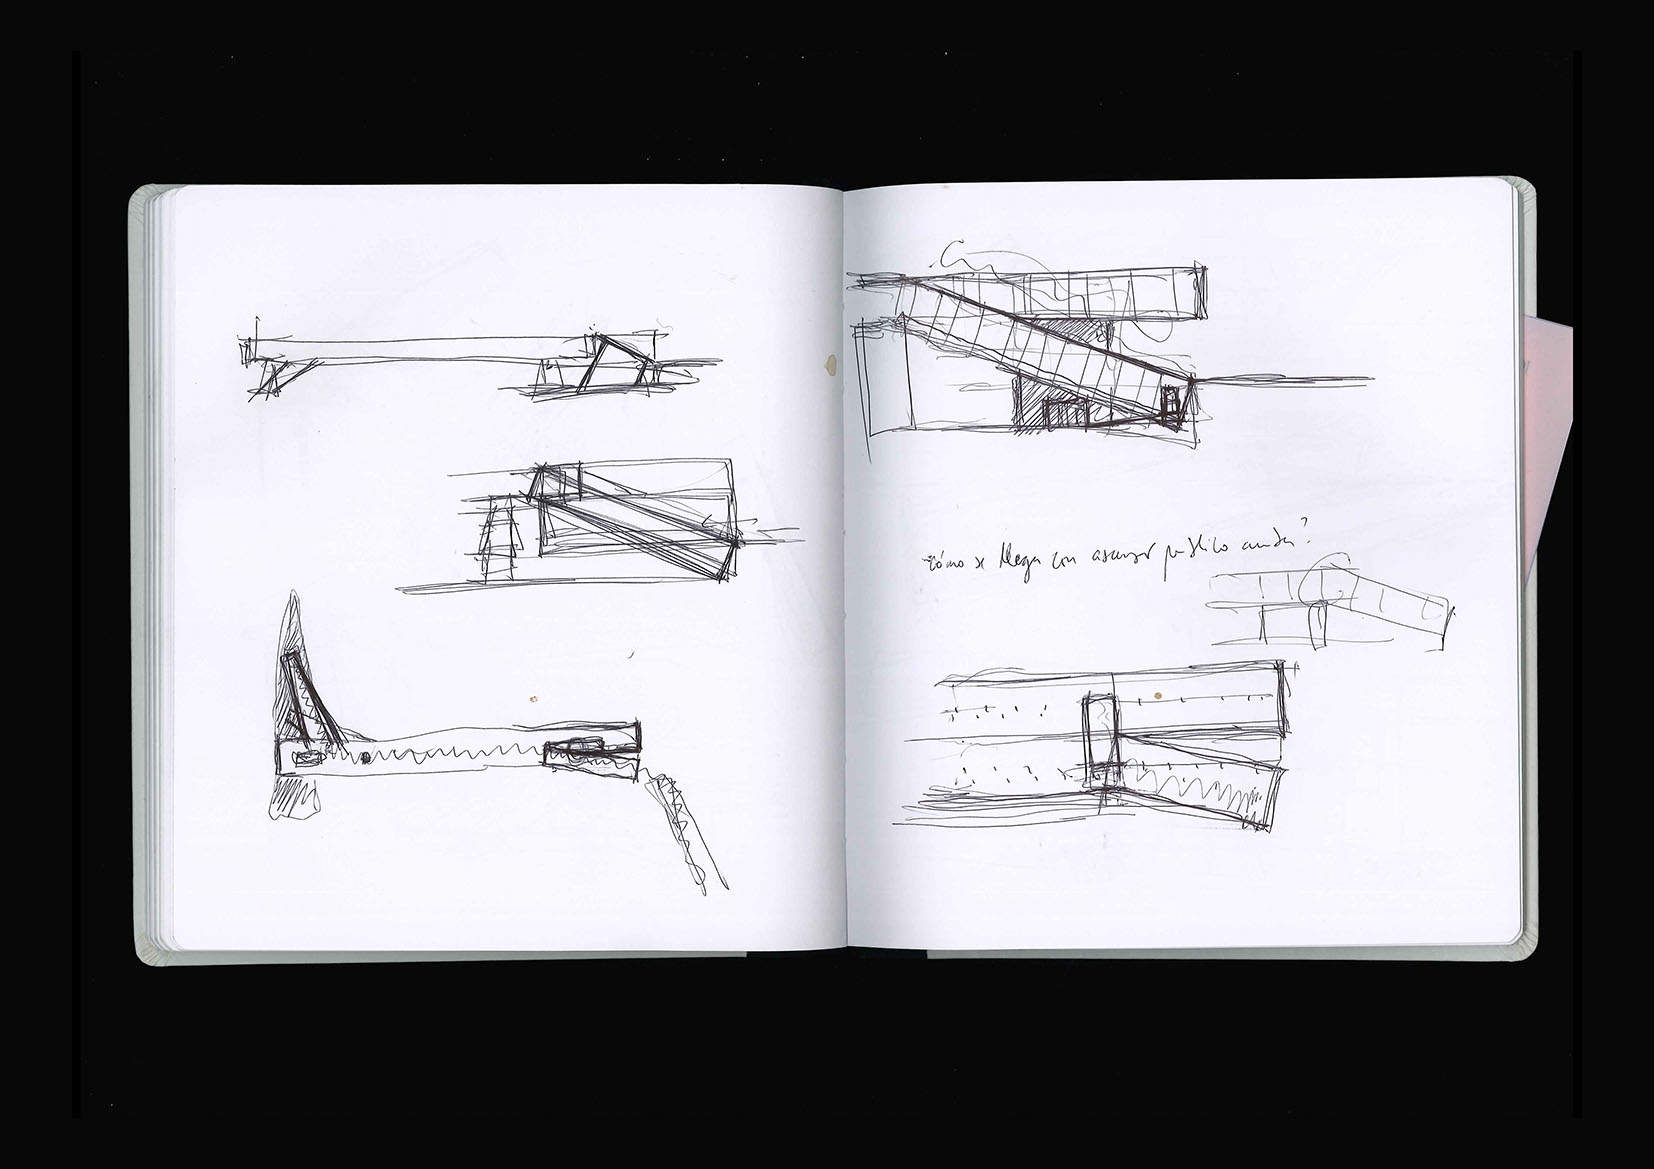 ¿cómo se llega con ascensor público andén?